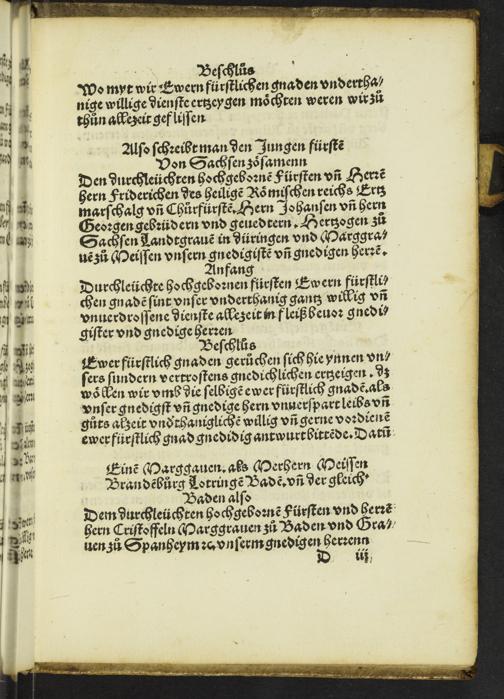 Beschlůs
Wo myt wir Ewern fürstlichen gnaden vndertha⸗
nige willige dienste ertzeygen möchten weren wir zů
thůn allezeit geflissen
Also schreibt man den Jungen fürstē
Von Sachsen zōsamenn
Den durchleüchten hochgebornē Fürsten vn̄ Herrē
hern Friderichen des heiligē Römischen reichs Ertz
marschalg vn̄ Chürfürstē. Hern Johansen vn̄ hern
Georgen gebrüdern vnd geuedtern. Hertzogen zů
Sachsen Landtgrauē in düringen vnd Marggra⸗
uē zů Meissen vnsern gnedigistē vn̄ gnedigen herrē.
Anfang
Durchleüchte hochgebornen fürsten Ewern fürstli⸗
chen gnadē sint vnser vnderthanig gantz willig vn̄
vnuerdrossene dienste allezeit in fleiß beuor gnedi⸗
gister vnd gnedige herren
Beschlůs
Ewer fürstlich gnaden gerůchen sich hie ynnen vn⸗
sers sundern vertrostens gnedichlichen ertzeigen. dz
wöllen wir vmb die selbigē ewer fürstlich gnadē. als
vnser gnedigst vn̄ gnedige hern vnuerspart leibs vn̄
gůts alzeit vndthaniglichē willig vn̄ gerne vordienē
ewer fürstlich gnad gnedidig antwurt bittēde. Datū
Einē Marggauen. als Merhern Meissen
Brandebürg Lottringē Badē. vn̄ der gleich⸗
Baden also
Dem durchleüchten hochgebornē Fürsten vnd herrē
hern Cristoffeln Marggrauen zů Baden vnd Gra⸗
uen zů Spanheym ꝛc. vnserm gnedigen herrenn
D iij